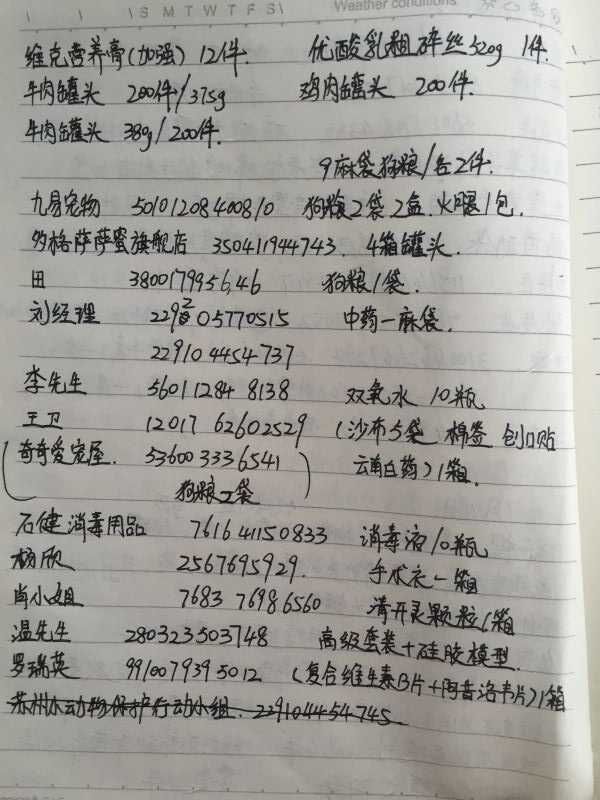 S M T W T F S Weather conditions
维克营养膏(加强) 12件. 优酸乳粗碎丝520g 1件.
牛肉罐头 200件/375g 鸡肉罐头 200件.
牛肉罐头 38g/200件.
9麻袋狗粮/各2件.
九易宠物 50101208400810 狗粮2袋2盒.火腿1包.
多格萨萨蜜旗舰店 350411944743. 4箱罐头.
田 3800179956,46 狗粮1袋.
刘经理 229205770515 中药一麻袋.
229104454737
李先生 560112848138 双氧水 10瓶
王卫 12017 62602529 (沙布5袋 棉签 创口贴
奇奇爱宠屋. 536003336541 云南白药)1箱.
狗粮2袋
石健消毒用品 761641150833 消毒液10瓶
杨欣 2567695929. 手术衣一箱
肖小姐 7683 7698 6560 清开灵颗粒1箱
温先生 280323503748 高级套装+硅胶模型.
罗瑞英 9910079395012 (复合维生素B片+阿昔洛韦片)1箱
苏州小动物保护行动小组. 229104454745